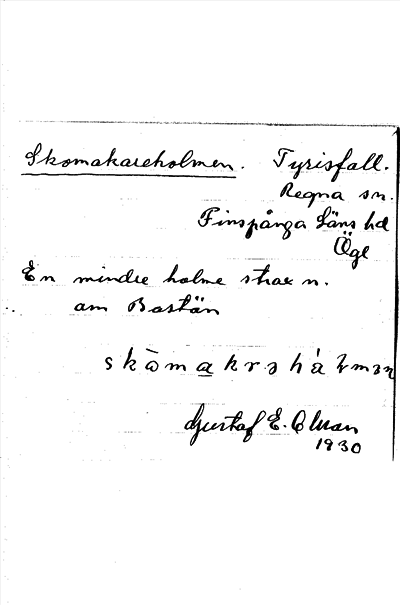 Skomakareholmen. Tyrisfall.
Regna sn.
Finspånga Läns hd
Ögl
En mindre holme strax n.
om Bastön
Gustaf E. Olson
1930